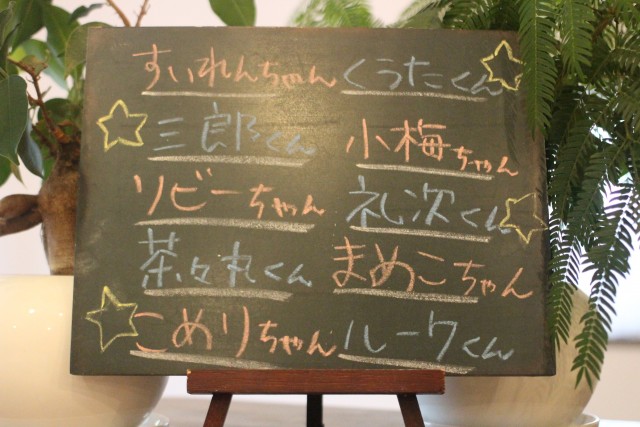 すいれんちゃん くうたくん
三郎くん 小梅ちゃん
リビーちゃん 礼次くん
茶々丸くん まめこちゃん
こめりちゃん ルークくん